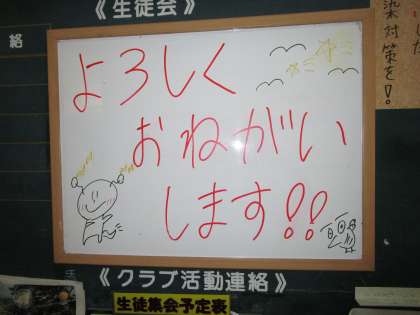 《生徒会》
絡
した
染対策を!
よろしく
おねがい
します!!
《クラブ活動連絡》
生徒集会予定表